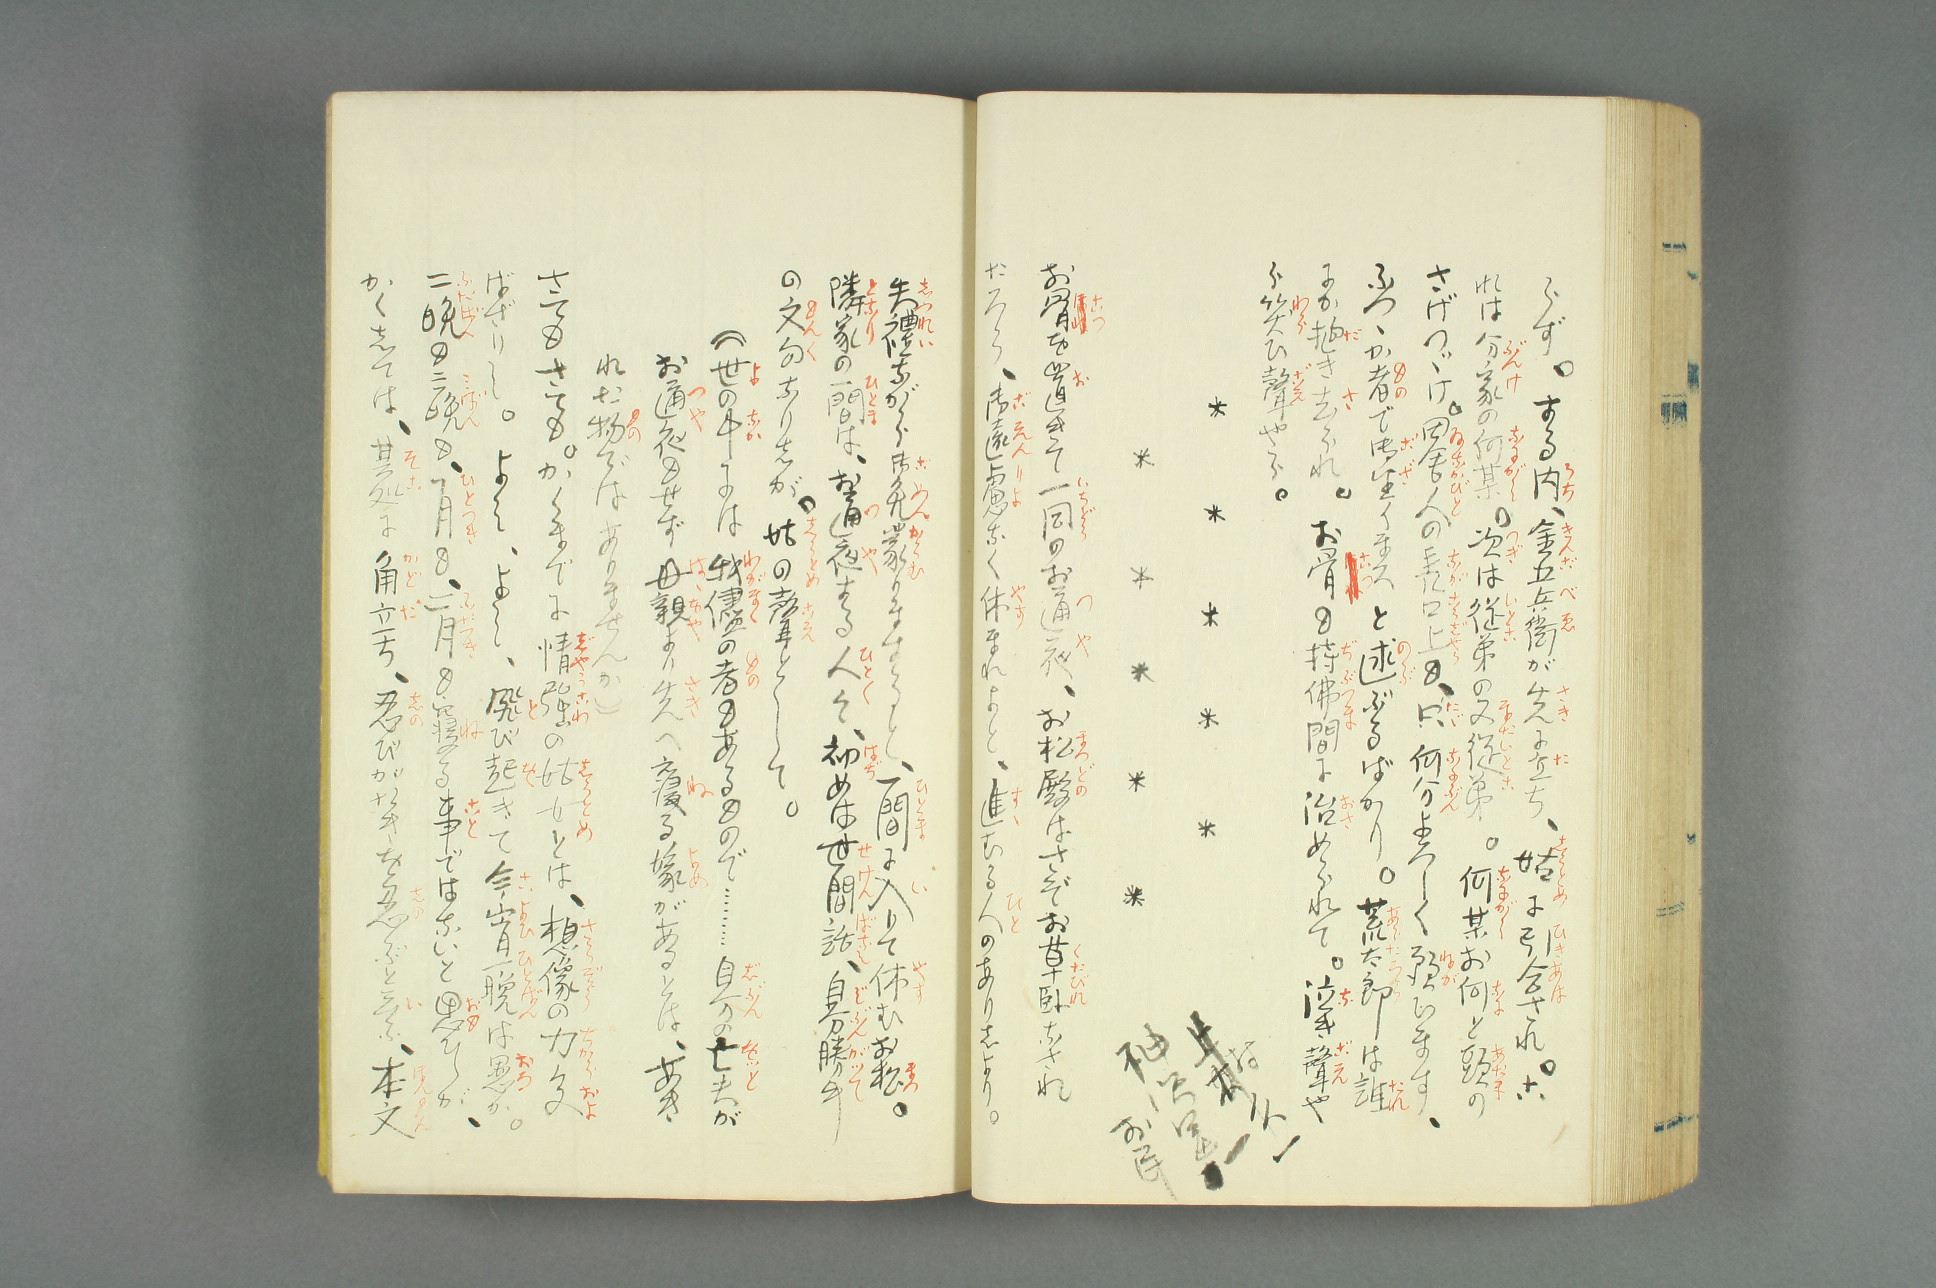 らず。する内、金五兵衛が先に立ち、姑に引合され。こ
れは分家の何某。次は従弟の又従弟。何某お何と頭の
さげつゞけ。田舎人の長口上も、只何分よろしく願ひます、
ふつゝか者で御座りますと述ぶるばかり。荒太郎は誰
にか抱き去られ。お骨も持佛間に治められて。泣き聲や
ら笑ひ聲やら。
＊＊＊＊＊
＊＊＊＊＊
お骨を置きて一同のお通夜、お松殿はさぞお草臥なされ
たろう、御遠慮なく休まれよと、進むる人のありしより。
失禮ながら御免蒙りますると、一間に入りて休むお松。
隣家の一間は、お通夜する人々、初めは世間話、自分勝手
の文句なりしが。姑の聲として。
（世の中には我儘の者もあるもので………自分の亡夫が
お通夜もせず母親より先へ寝る嫁があるとは、あき
れた物ではありませんか）
さてもさても。かくまでに情強の姑女とは、想像の力及
ばざりし。よし、よし、飛び起きて今宵一晩は愚か。
二晩も三晩も、一月も、二月も寝る事ではないと思ひしが、
かくしては、其処に角立ち、忍びがたきを忍ぶと言ふ、本文